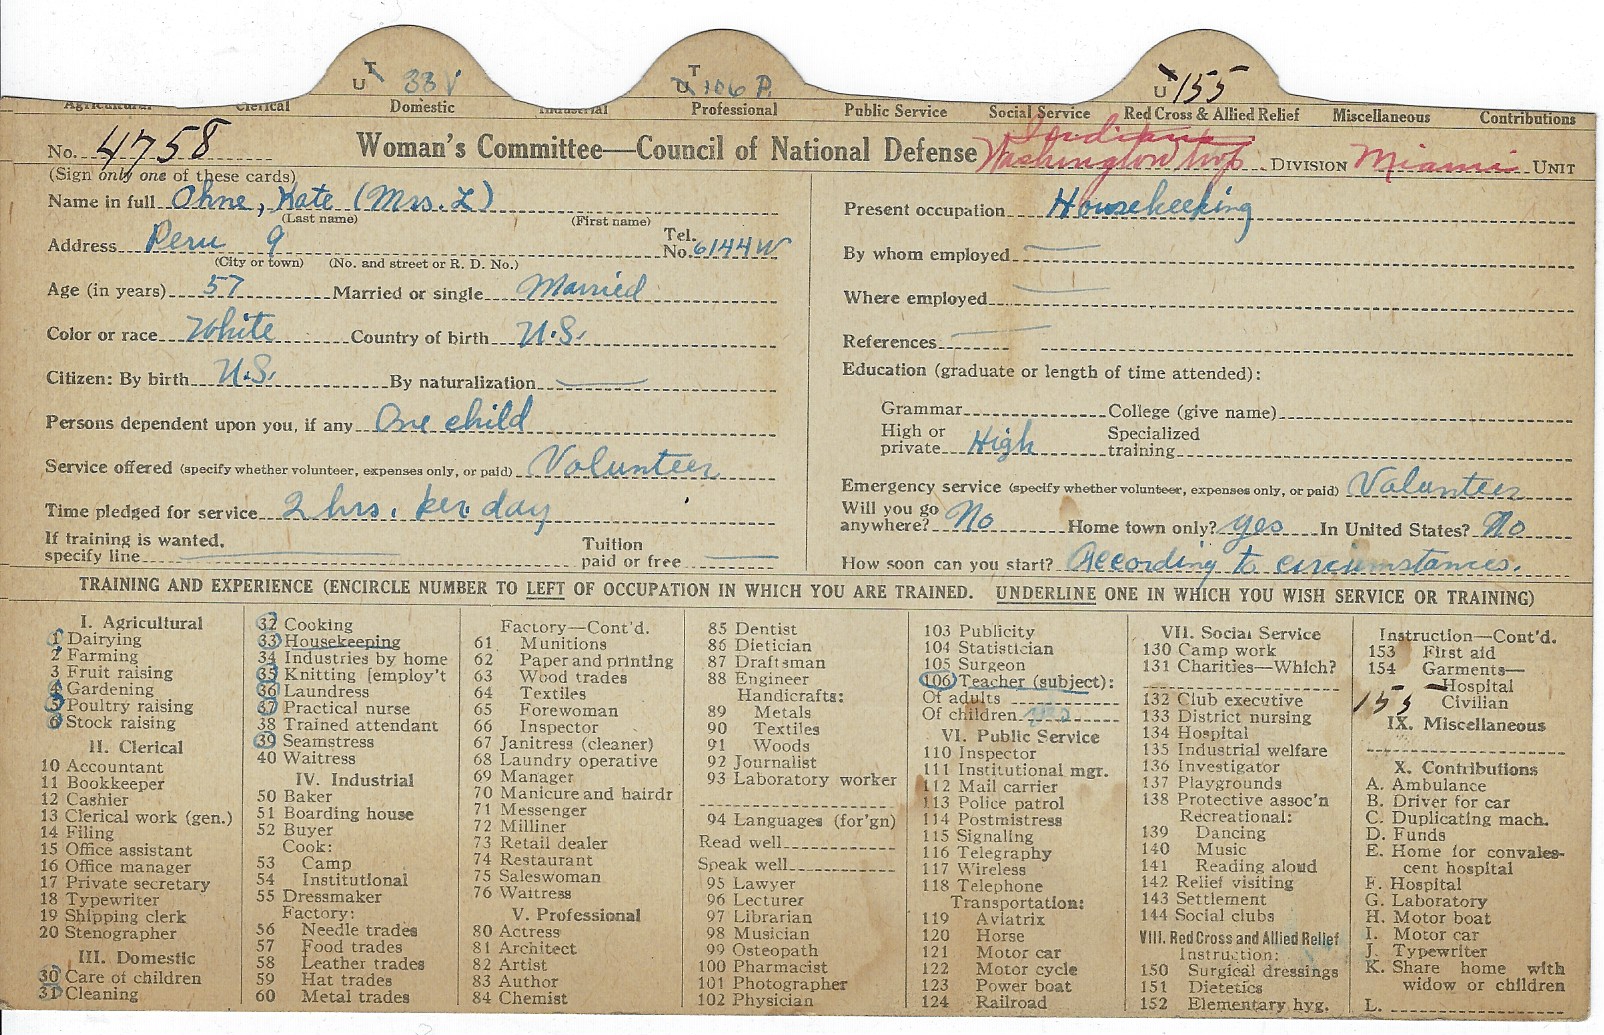 T
U 33 V
T
U 106 P.
T
U 155
Agricultural Clerical Domestic Industrial Professional Public Service Social Service Red Cross & Allied Relief Miscellaneous Contributions
No. 4758 Woman's Committee—Council of National Defense Indiana
Washington Twp. DIVISION Miami UNIT
(Sign only one of these cards)
Name in full Ohne, Kate (Mrs. L)
(Last name) (First name)
Address Peru 9 Tel. No. 6144W
(City or town) (No. and street or R. D. No.)
Age (in years) 57 Married or single Married
Color or race White Country of birth U.S.
Citizen: By birth U.S. By naturalization
Persons dependent upon you, if any One child
Service offered (specify whether volunteer, expenses only, or paid) Volunteer
Time pledged for service 2 hrs. per day
If training is wanted,
specify line Tuition
paid or free
Present occupation Housekeeking
By whom employed
Where employed
References
Education (graduate or length of time attended):
Grammar College (give name)
High or
private High Specialized
training
Emergency service (specify whether volunteer, expenses only, or paid) Volunteer
Will you go
anywhere? No Home town only? yes In United States? No
How soon can you start? According to circumstances.
TRAINING AND EXPERIENCE (ENCIRCLE NUMBER TO LEFT OF OCCUPATION IN WHICH YOU ARE TRAINED. UNDERLINE ONE IN WHICH YOU WISH SERVICE OR TRAINING)
I. Agricultural
1 Dairying
2 Farming
3 Fruit raising
4 Gardening
5 Poultry raising
6 Stock raising
II. Clerical
10 Accountant
11 Bookkeeper
12 Cashier
13 Clerical work (gen.)
14 Filing
15 Office assistant
16 Office manager
17 Private secretary
18 Typewriter
19 Shipping clerk
20 Stenographer
III. Domestic
30 Care of children
31 Cleaning
32 Cooking
33 Housekeeping
34 Industries by home
35 Knitting [employ't
36 Laundress
37 Practical nurse
38 Trained attendant
39 Seamstress
40 Waitress
IV. Industrial
50 Baker
51 Boarding house
52 Buyer
Cook:
53 Camp
54 Institutional
55 Dressmaker
Factory:
56 Needle trades
57 Food trades
58 Leather trades
59 Hat trades
60 Metal trades
Factory—Cont'd.
61 Munitions
62 Paper and printing
63 Wood trades
64 Textiles
65 Forewoman
66 Inspector
67 Janitress (cleaner)
68 Laundry operative
69 Manager
70 Manicure and hairdr
71 Messenger
72 Milliner
73 Retail dealer
74 Restaurant
75 Saleswoman
76 Waitress
V. Professional
80 Actress
81 Architect
82 Artist
83 Author
84 Chemist
85 Dentist
86 Dietician
87 Draftsman
88 Engineer
Handicrafts:
89 Metals
90 Textiles
91 Woods
92 Journalist
93 Laboratory worker
94 Languages (for'gn)
Read well
Speak well
95 Lawyer
96 Lecturer
97 Librarian
98 Musician
99 Osteopath
100 Pharmacist
101 Photographer
102 Physician
103 Publicity
104 Statistician
105 Surgeon
106 Teacher (subject):
Of adults
Of children
VI. Public Service
110 Inspector
111 Institutional mgr.
112 Mail carrier
113 Police patrol
114 Postmistress
115 Signaling
116 Telegraphy
117 Wireless
118 Telephone
Transportation:
119 Aviatrix
120 Horse
121 Motor car
122 Motor cycle
123 Power boat
124 Railroad
VII. Social Service
130 Camp work
131 Charities—Which?
132 Club executive
133 District nursing
134 Hospital
135 Industrial welfare
136 Investigator
137 Playgrounds
138 Protective assoc'n
Recreational:
139 Dancing
140 Music
141 Reading aloud
142 Relief visiting
143 Settlement
144 Social clubs
VIII. Red Cross and Allied Relief
Instruction:
150 Surgical dressings
151 Dietetics
152 Elementary hyg.
Instruction—Cont'd.
153 First aid
154 Garments—
Hospital
155 Civilian
IX. Miscellaneous
X. Contributions
A. Ambulance
B. Driver for car
C. Duplicating mach.
D. Funds
E. Home for convales-
cent hospital
F. Hospital
G. Laboratory
H. Motor boat
I. Motor car
J. Typewriter
K. Share home with
widow or children
L.